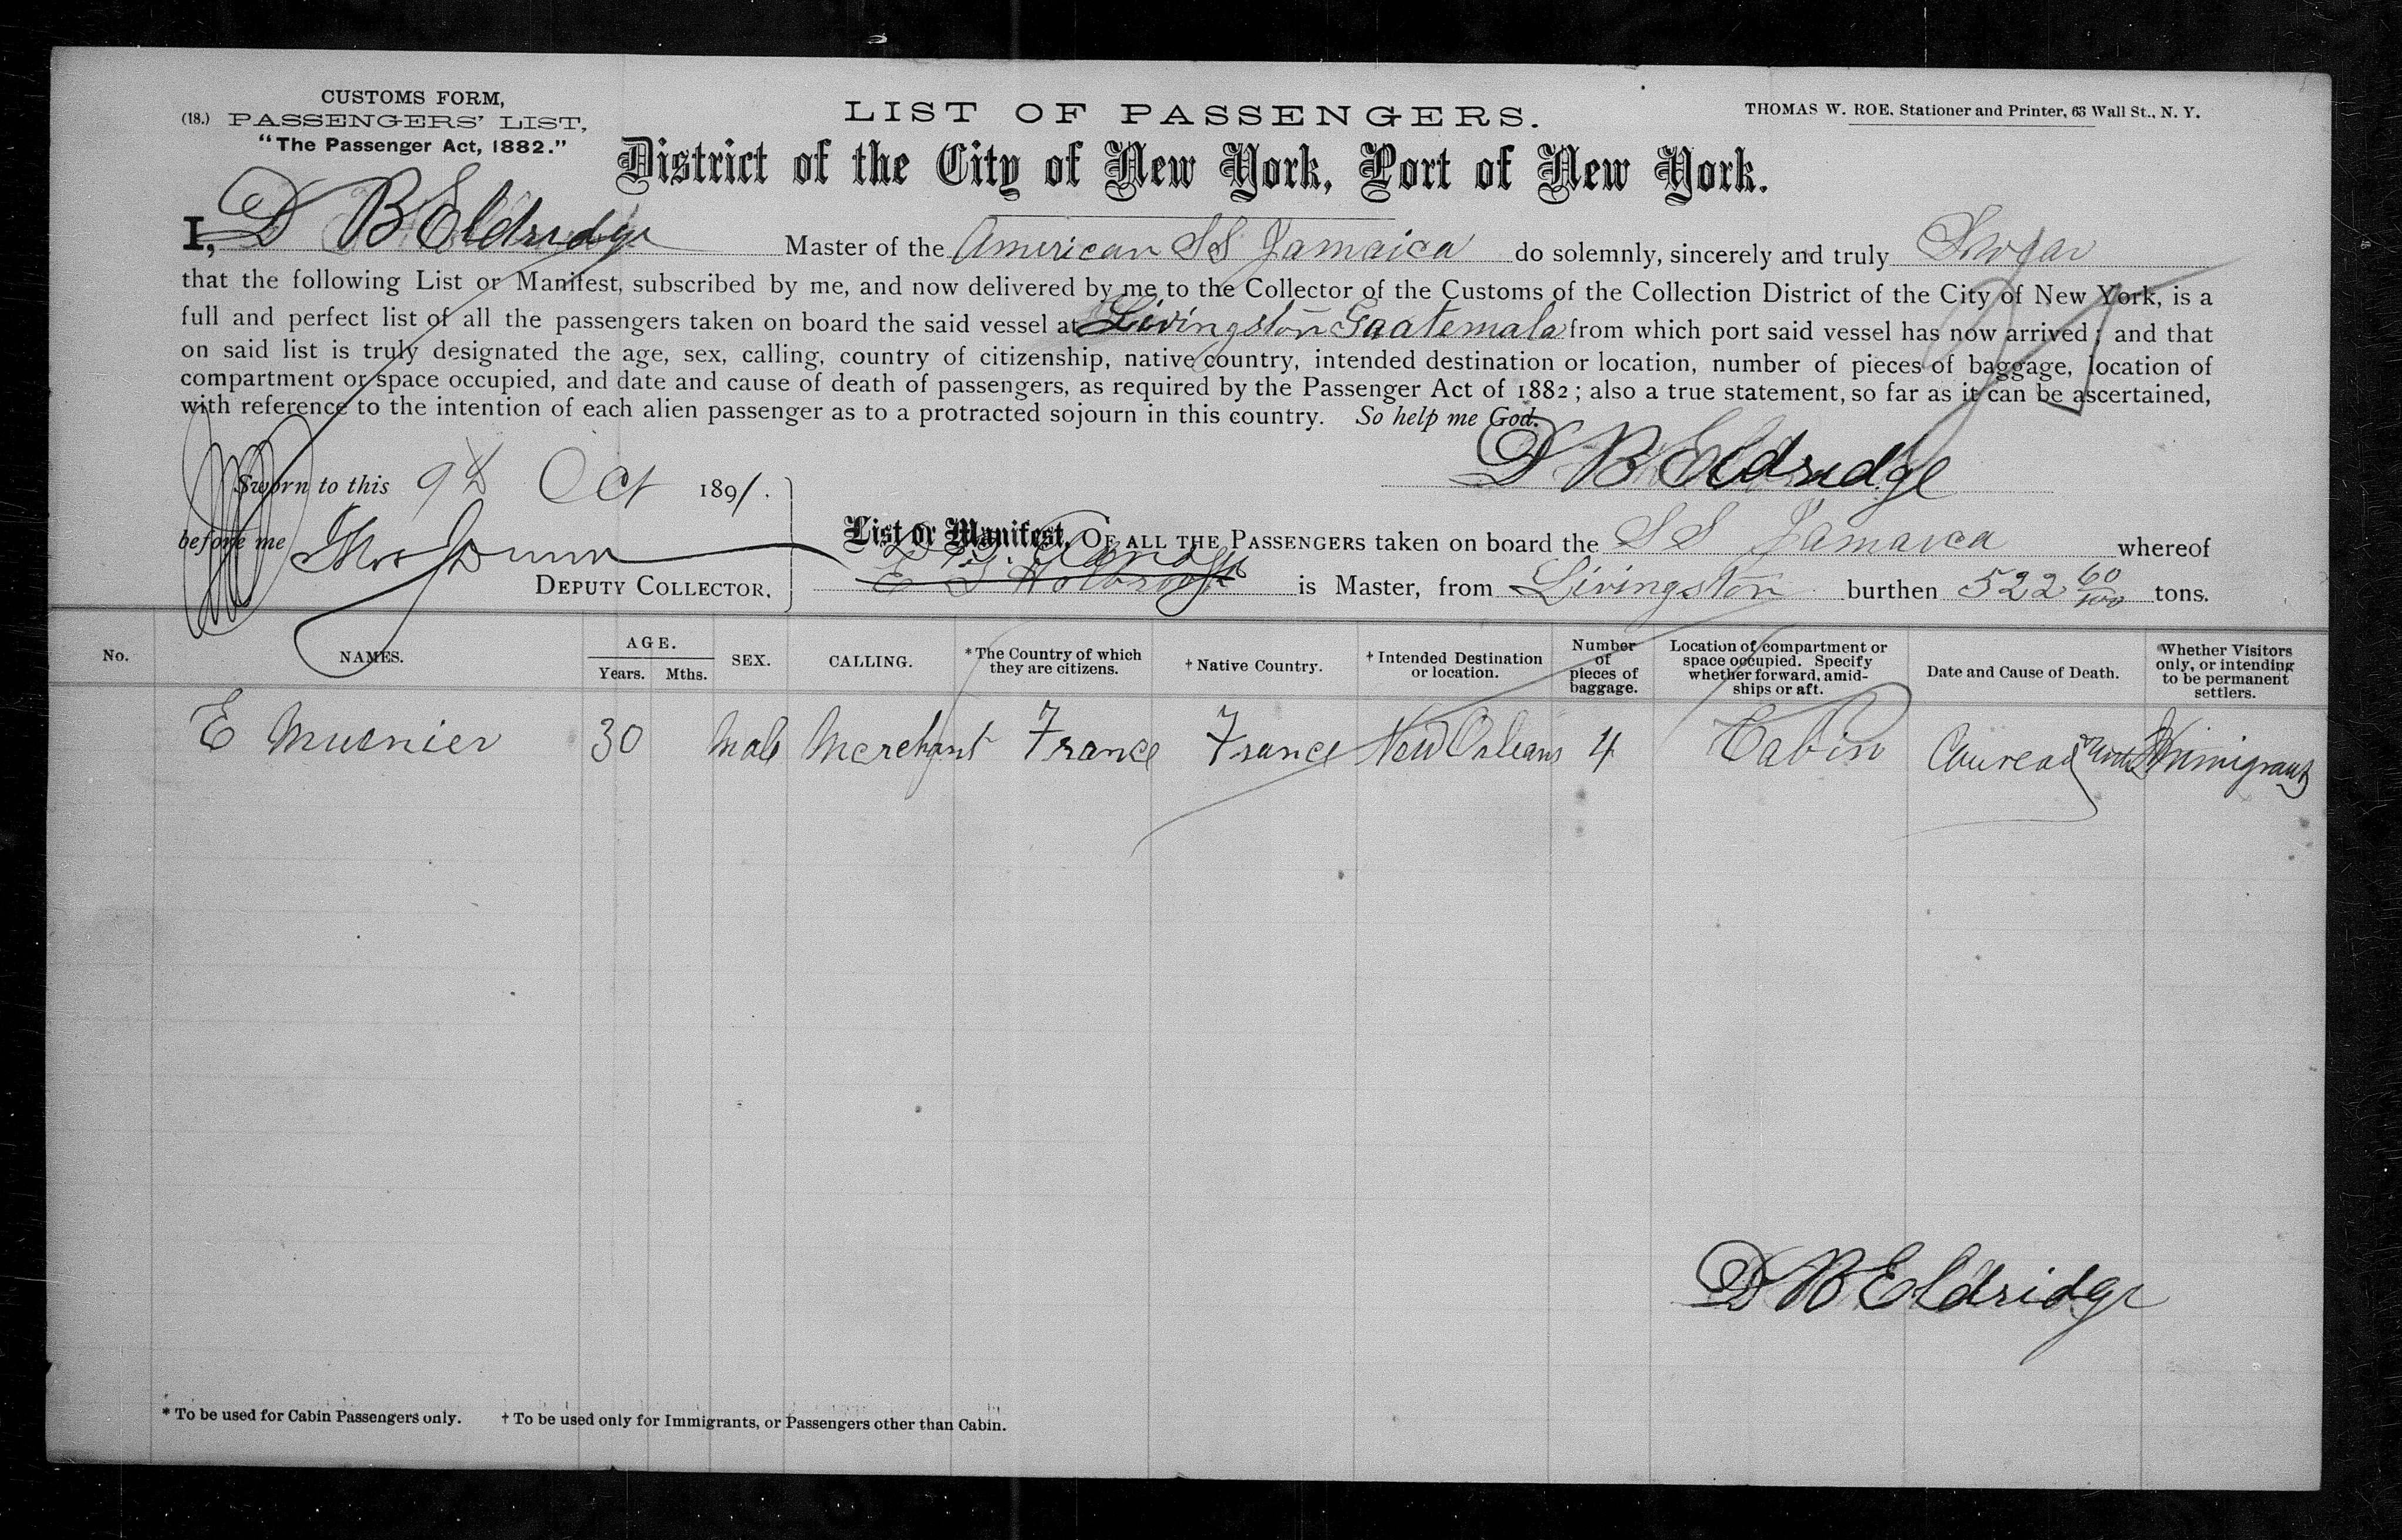 CUSTOMS FORM,
(18.) PASSENGERS' LIST,
"The Passenger Act, 1882."
LIST OF PASSENGERS.
THOMAS W. ROE, Stationer and Printer, 63 Wall St., N. Y.
District of the City of New York, Port of New York.
I, D B Eldridge Master of the American SS Jamaica do solemnly, sincerely and truly Swear
that the following List or Manifest, subscribed by me, and now delivered by me to the Collector of the Customs of the Collection District of the City of New York, is a
full and perfect list of all the passengers taken on board the said vessel at Livingston Guatemala from which port said vessel has now arrived; and that
on said list is truly designated the age, sex, calling, country of citizenship, native country, intended destination or location, number of pieces of baggage, location of
compartment or space occupied, and date and cause of death of passengers, as required by the Passenger Act of 1882; also a true statement, so far as it can be ascertained,
with reference to the intention of each alien passenger as to a protracted sojourn in this country. So help me God.
D B Eldridge
Sworn to this 9th Oct 1891.
before me Thos Dunn
DEPUTY COLLECTOR.
List or Manifest, OF ALL THE PASSENGERS taken on board the SS Jamaica whereof
E S Holbrook is Master, from Livingston burthen 522 60/100 tons.
No. NAMES. AGE. Years. Mths. SEX. CALLING. *The Country of which they are citizens. †Native Country. †Intended Destination or location. Number of pieces of baggage. Location of compartment or space occupied. Specify whether forward, amidships or aft. Date and Cause of Death. Whether Visitors only, or intending to be permanent settlers.
E Muenier 30 Male Merchant France France New Orleans 4 Cabin Immigrant
D B Eldridge
* To be used for Cabin Passengers only. † To be used only for Immigrants, or Passengers other than Cabin.